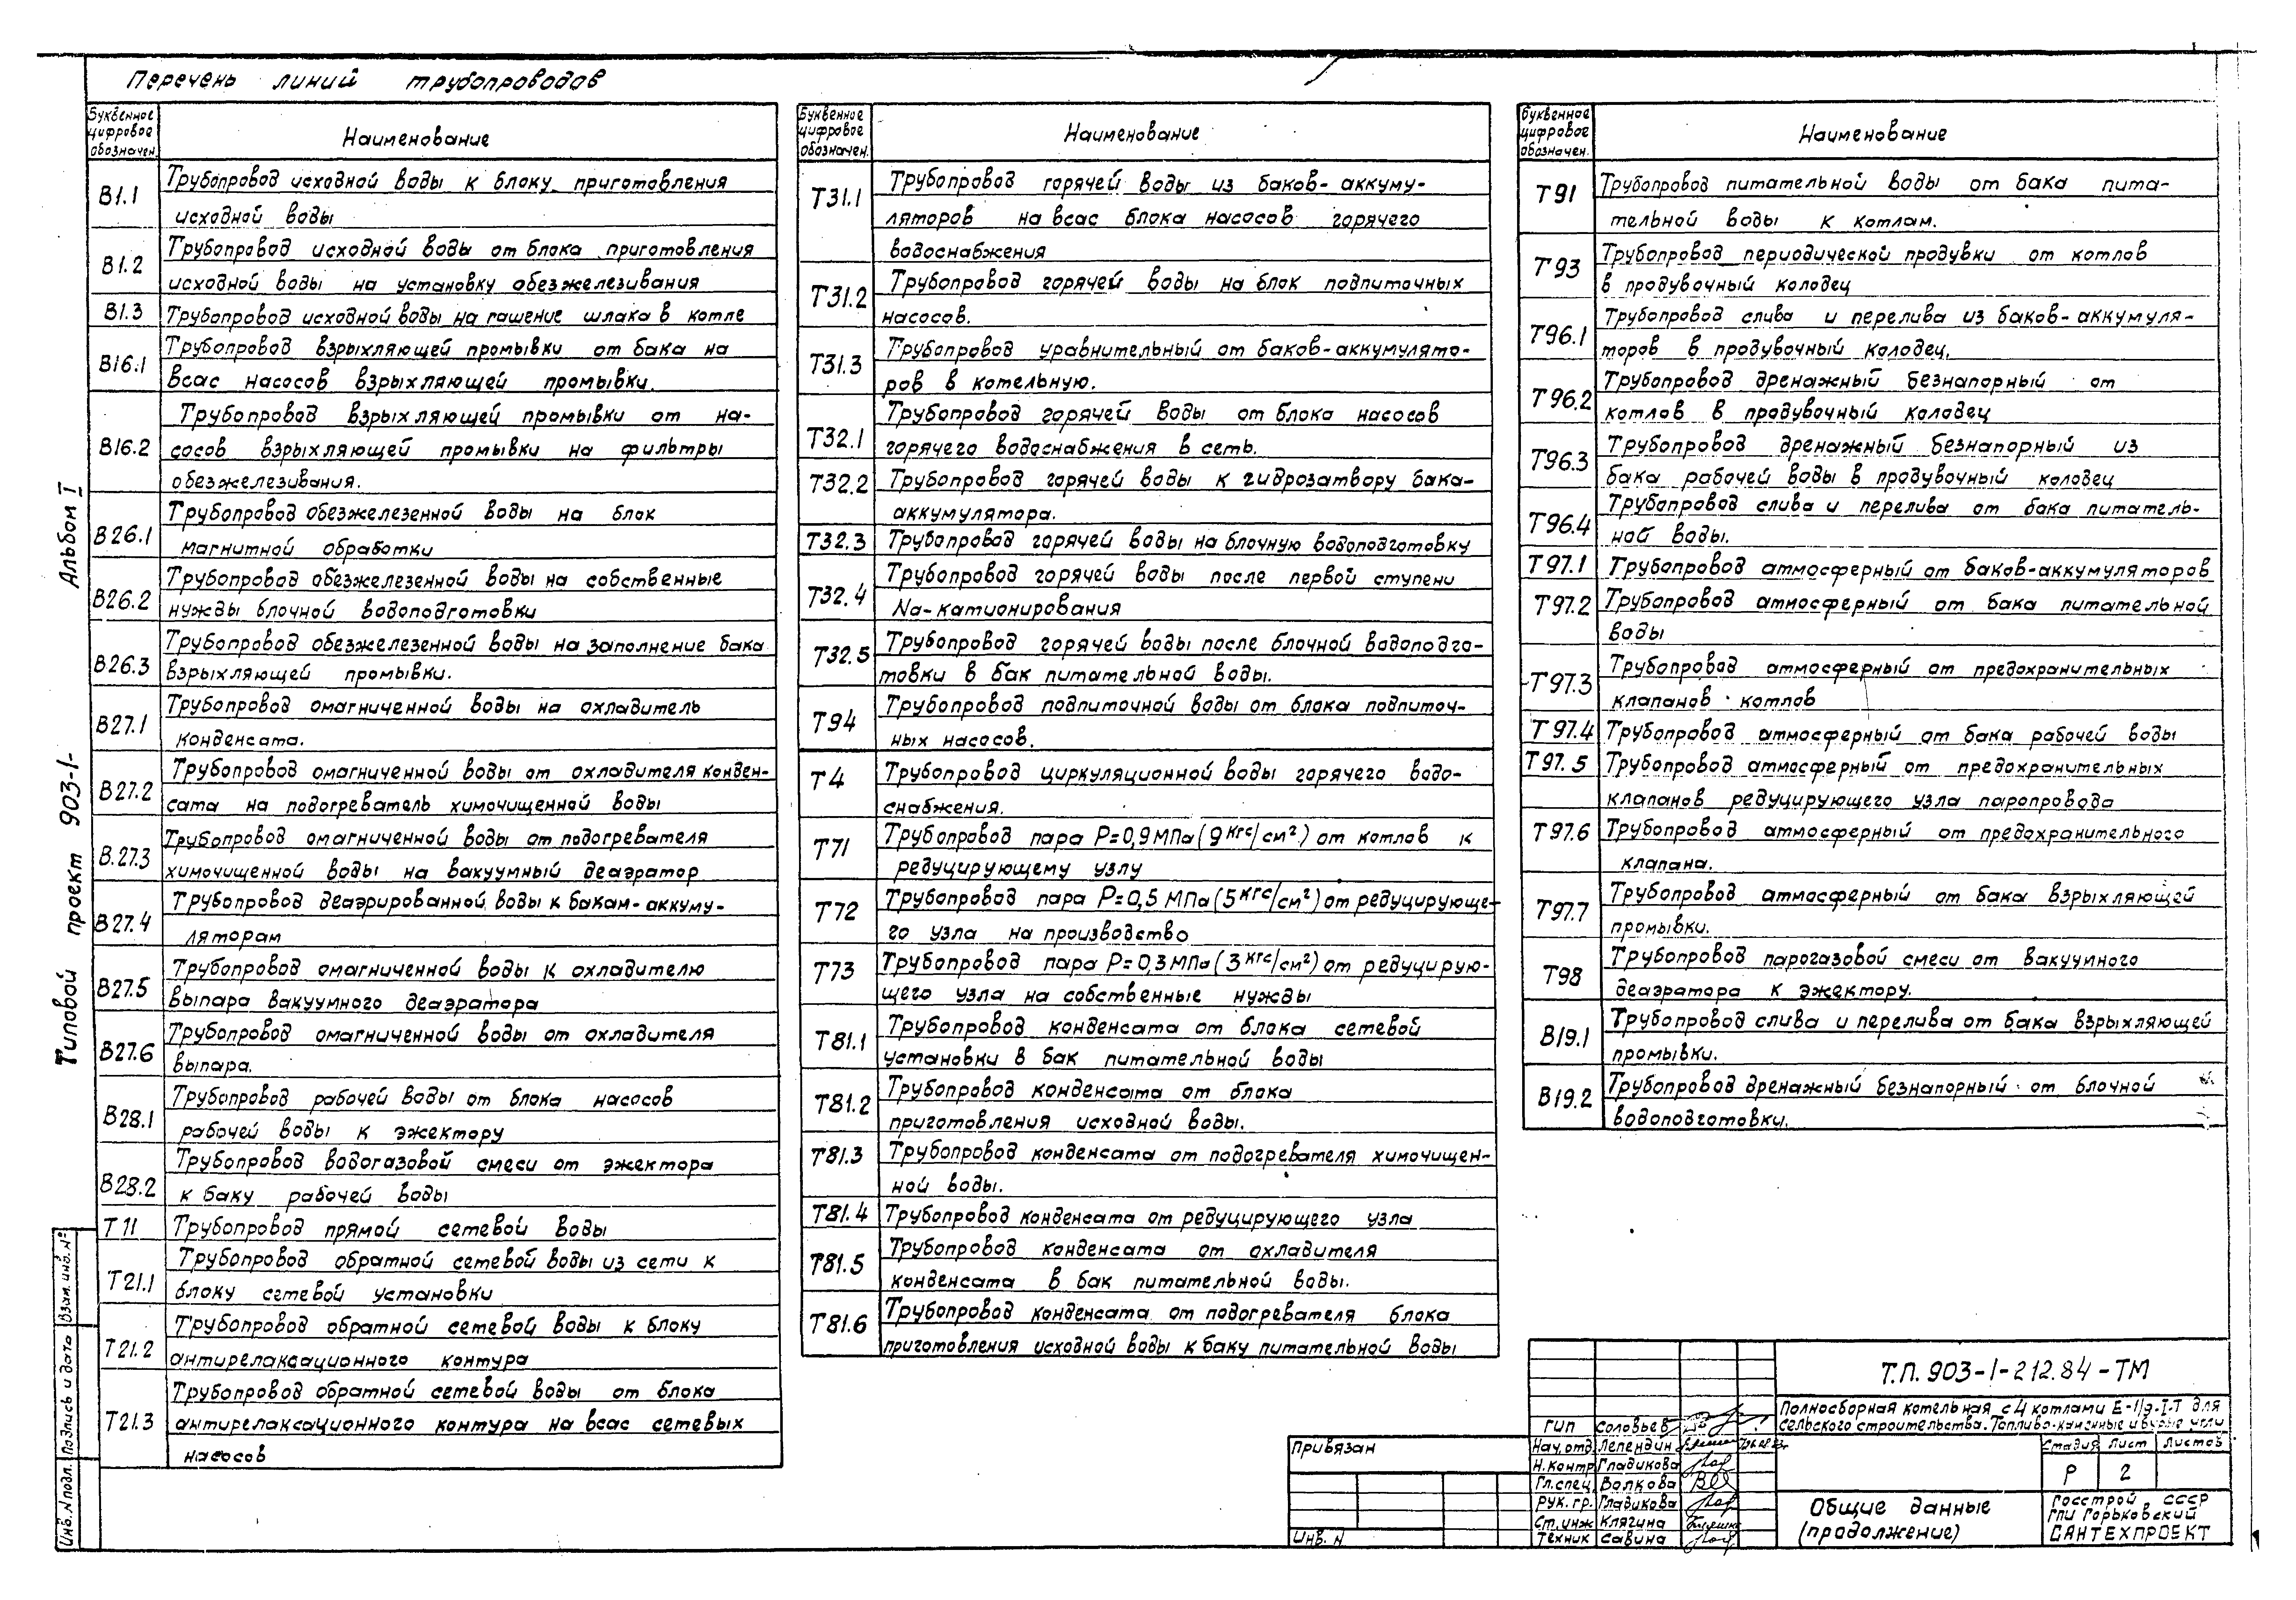 Перечень линий трубопроводов
Буквенное
цифровое
обозначен.
Наименование
В1.1
Трубопровод исходной воды к блоку приготовления
исходной воды
В1.2
Трубопровод исходной воды от блока приготовления
исходной воды на установку обезжелезивания
В1.3
Трубопровод исходной воды на гашение шлака в котле
В16.1
Трубопровод взрыхляющей промывки от бака на
всас насосов взрыхляющей промывки.
В16.2
Трубопровод взрыхляющей промывки от на-
сосов взрыхляющей промывки на фильтры
обезжелезивания.
В26.1
Трубопровод обезжелезенной воды на блок
магнитной обработки
В26.2
Трубопровод обезжелезенной воды на собственные
нужды блочной водоподготовки
В26.3
Трубопровод обезжелезенной воды на заполнение бака
взрыхляющей промывки.
В27.1
Трубопровод омагниченной воды на охладитель
конденсата.
В27.2
Трубопровод омагниченной воды от охладителя конден-
сата на подогреватель химочищенной воды
В.27.3
Трубопровод омагниченной воды от подогревателя
химочищенной воды на вакуумный деаэратор
В27.4
Трубопровод деаэрированной воды к бакам-аккуму-
ляторам
В27.5
Трубопровод омагниченной воды к охладителю
выпара вакуумного деаэратора
В27.6
Трубопровод омагниченной воды от охладителя
выпара.
В28.1
Трубопровод рабочей воды от блока насосов
рабочей воды к эжектору
В28.2
Трубопровод водогазовой смеси от эжектора
к баку рабочей воды
Т11
Трубопровод прямой сетевой воды
Т21.1
Трубопровод обратной сетевой воды из сети к
блоку сетевой установки
Т21.2
Трубопровод обратной сетевой воды к блоку
антирелаксационного контура
Т21.3
Трубопровод обратной сетевой воды от блока
антирелаксационного контура на всас сетевых
насосов
Буквенное
цифровое
обозначен.
Наименование
Т31.1
Трубопровод горячей воды из баков-аккуму-
ляторов на всас блока насосов горячего
водоснабжения
Т31.2
Трубопровод горячей воды на блок подпиточных
насосов.
Т31.3
Трубопровод уравнительный от баков-аккумулято-
ров в котельную.
Т32.1
Трубопровод горячей воды от блока насосов
горячего водоснабжения в сеть.
Т32.2
Трубопровод горячей воды к гидрозатвору бака-
аккумулятора.
Т32.3
Трубопровод горячей воды на блочную водоподготовку
Т32.4
Трубопровод горячей воды после первой ступени
Na-катионирования
Т32.5
Трубопровод горячей воды после блочной водоподго-
товки в бак питательной воды.
Т94
Трубопровод подпиточной воды от блока подпиточ-
ных насосов.
Т4
Трубопровод циркуляционной воды горячего водо-
снабжения.
Т71
Трубопровод пара Р=0,9 МПа (9 кгс/см²) от котлов к
редуцирующему узлу
Т72
Трубопровод пара Р=0,5 МПа (5 кгс/см²) от редуцирующе-
го узла на производство
Т73
Трубопровод пара Р=0,3 МПа (3 кгс/см²) от редуцирую-
щего узла на собственные нужды
Т81.1
Трубопровод конденсата от блока сетевой
установки в бак питательной воды
Т81.2
Трубопровод конденсата от блока
приготовления исходной воды.
Т81.3
Трубопровод конденсата от подогревателя химочищен-
ной воды.
Т81.4
Трубопровод конденсата от редуцирующего узла
Т81.5
Трубопровод конденсата от охладителя
конденсата в бак питательной воды.
Т81.6
Трубопровод конденсата от подогревателя блока
приготовления исходной воды к баку питательной воды
Буквенное
цифровое
обозначен.
Наименование
Т91
Трубопровод питательной воды от бака пита-
тельной воды к котлам.
Т93
Трубопровод периодической продувки от котлов
в продувочный колодец
Т96.1
Трубопровод слива и перелива из баков-аккумуля-
торов в продувочный колодец.
Т96.2
Трубопровод дренажный безнапорный от
котлов в продувочный колодец
Т96.3
Трубопровод дренажный безнапорный из
бака рабочей воды в продувочный колодец
Т96.4
Трубопровод слива и перелива от бака питатель-
ной воды.
Т97.1
Трубопровод атмосферный от баков-аккумуляторов
Т97.2
Трубопровод атмосферный от бака питательной
воды
Т97.3
Трубопровод атмосферный от предохранительных
клапанов котлов
Т97.4
Трубопровод атмосферный от бака рабочей воды
Т97.5
Трубопровод атмосферный от предохранительных
клапанов редуцирующего узла паропровода
Т97.6
Трубопровод атмосферный от предохранительного
клапана.
Т97.7
Трубопровод атмосферный от бака взрыхляющей
промывки.
Т98
Трубопровод парогазовой смеси от вакуумного
деаэратора к эжектору.
В19.1
Трубопровод слива и перелива от бака взрыхляющей
промывки.
В19.2
Трубопровод дренажный безнапорный от блочной
водоподготовки.
Типовой проект 903-1- Альбом I
Инв. N подл. Подпись и дата Взам. инв. N°
Привязан
Инв. N
ГИП Соловьев
Нач. отд. Лепендин
Н.контр Гладикова
Гл.спец. Волкова
Рук. гр. Гладикова
Ст.инж Клягина
Техник Савина
Т.П. 903-1-212.84-ТМ
Полносборная котельная с 4 котлами Е-1/9-I-Т для
сельского строительства. Топливо-каменные и бурые угли
Стадия Лист Листов
Р 2
Общие данные
(продолжение)
Госстрой СССР
ГПИ Горьковский
САНТЕХПРОЕКТ